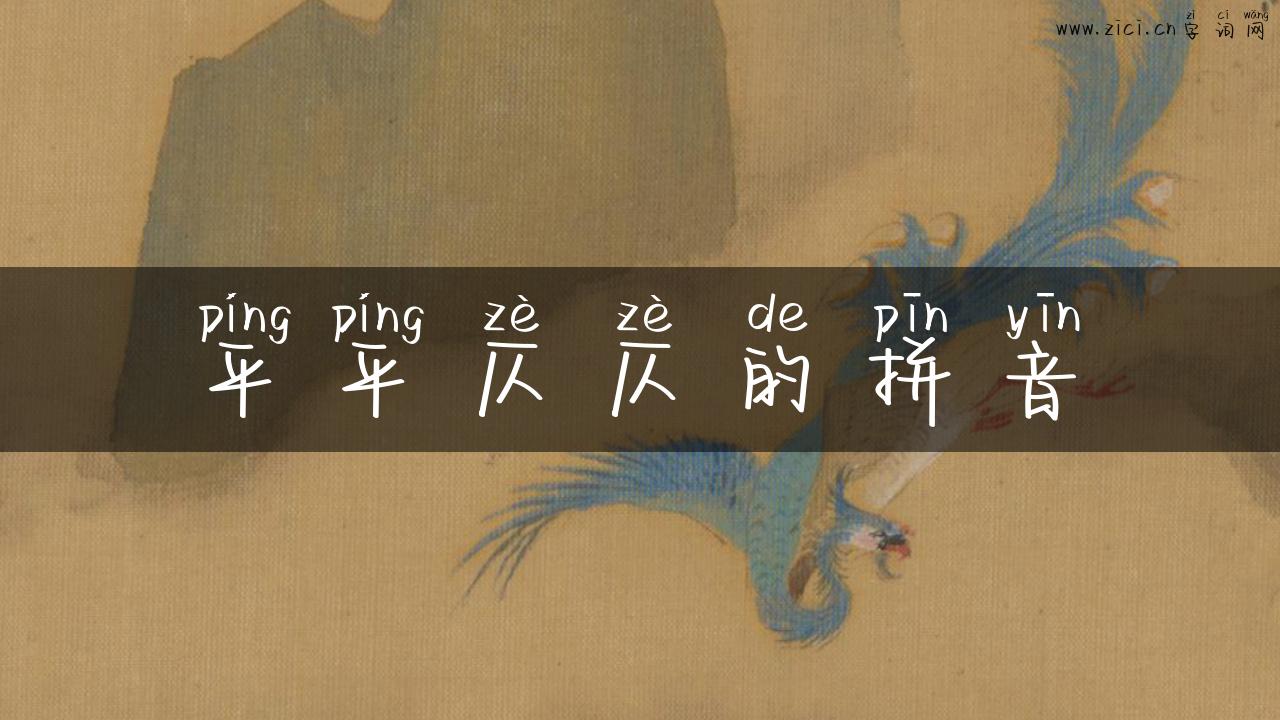 zì cí wǎng
www.zici.cn 字词网
píng píng zè zè de pīn yīn
平平仄仄的拼音